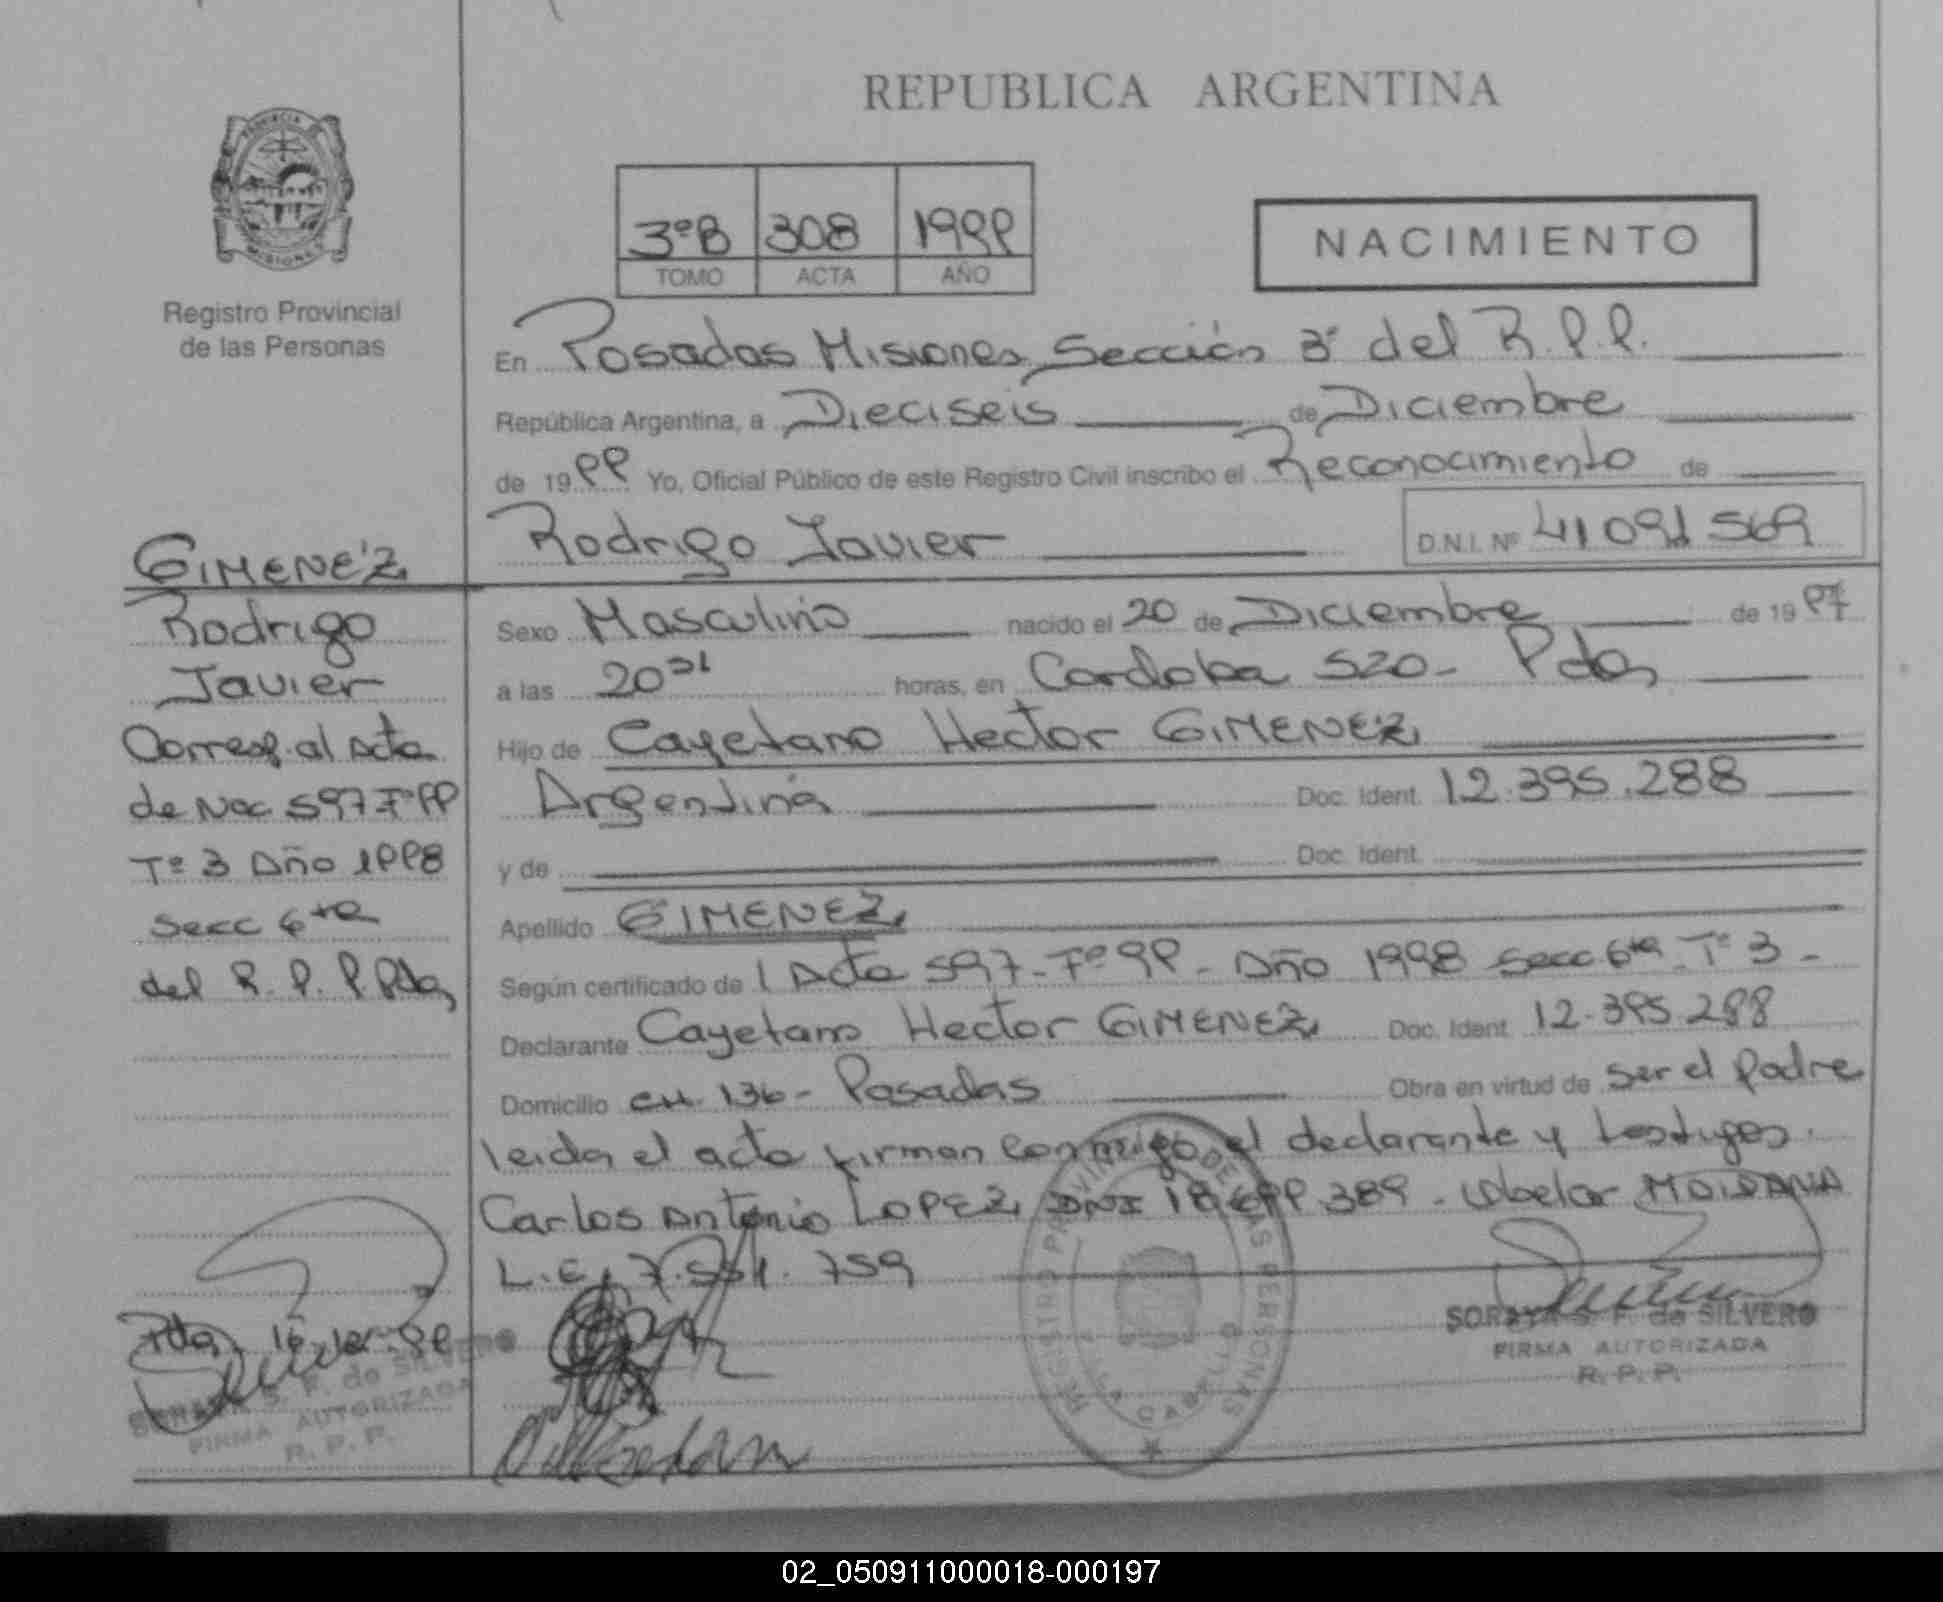 REPUBLICA ARGENTINA
PROVINCIA DE
MISIONES
Registro Provincial
de las Personas
3ºB 308 1999
TOMO ACTA AÑO
NACIMIENTO
En Posadas Misiones Sección 3ª del R.P.P.
República Argentina, a Dieciseis de Diciembre
de 1999 Yo, Oficial Público de este Registro Civil inscribo el Reconocimiento de
Rodrigo Javier D.N.I. Nº 41 091 569
GIMENEZ
Rodrigo
Javier
Corresp. al acta
de Nac 597 Fº 99
Tº 3 Año 1998
Secc 6ta
del R.P.P. Pdas
Sexo Masculino nacido el 20 de Diciembre de 1997
a las 20 horas, en Cordoba 520- Pdas
Hijo de Cayetano Hector GIMENEZ
Argentina Doc. Ident. 12.395.288
y de Doc. Ident.
Apellido GIMENEZ
Según certificado de Acta 597- Fº 99- Año 1998 Secc 6ta Tº 3-
Declarante Cayetano Hector GIMENEZ Doc. Ident 12.395.288
Domicilio CH. 136- Posadas Obra en virtud de Ser el padre
leida el acta firman conmigo el declarante y testigos.
Carlos Antonio LOPEZ DNI 389 - MAIDANA
L.E. 759
REGISTRO PROVINCIAL DE LAS PERSONAS
VILLA CABELLO
SORAYA S. F. de SILVERO
FIRMA AUTORIZADA
R. P. P.
Pdas 16
SORAYA S. F. de SILVERO
FIRMA AUTORIZADA
R. P. P.
02_050911000018-000197